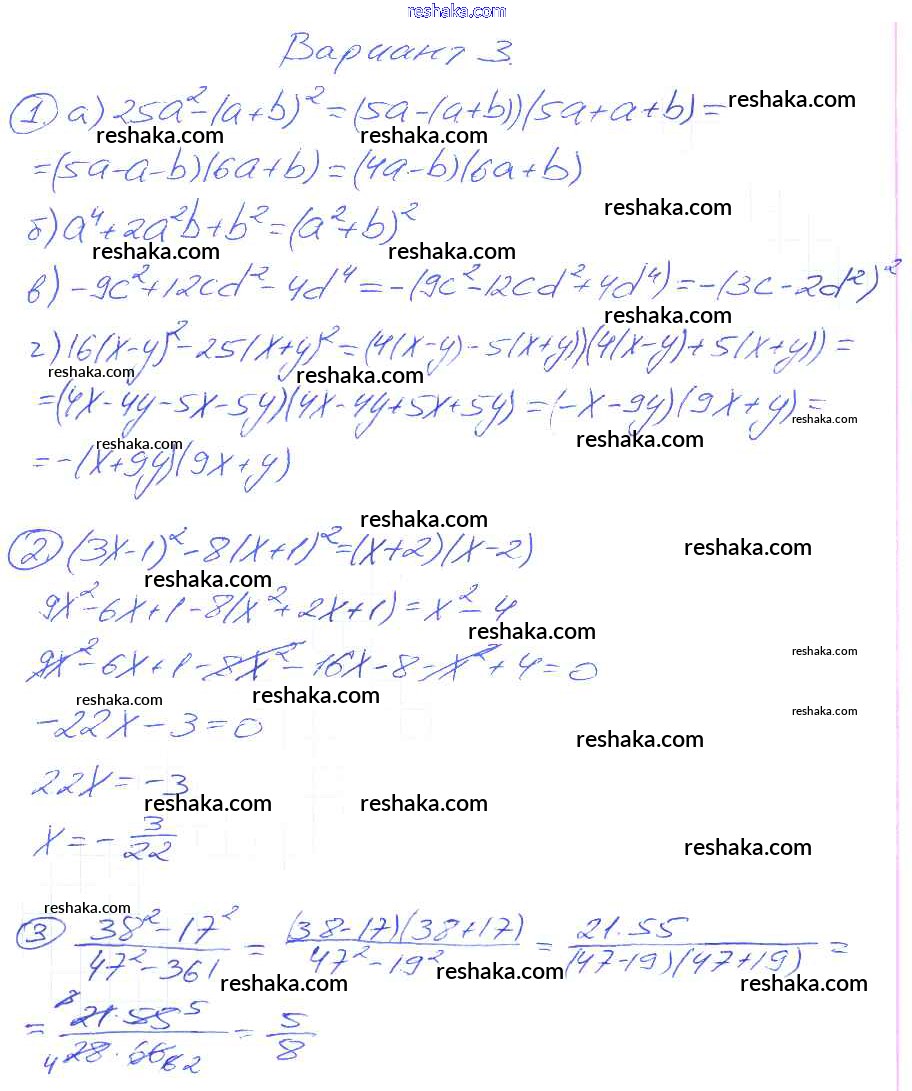 reshaka.com
Вариант 3.
1. а) 25a² - (a+b)² = (5a-(a+b))(5a+a+b) = reshaka.com
reshaka.com reshaka.com
= (5a-a-b)(6a+b) = (4a-b)(6a+b)
reshaka.com
б) a⁴+2a²b+b² = (a²+b)²
reshaka.com reshaka.com
в) -9c²+12cd²-4d⁴ = -(9c²-12cd²+4d⁴) = -(3c-2d²)²
reshaka.com
г) 16(x-y)²-25(x+y)² = (4(x-y)-5(x+y))(4(x-y)+5(x+y)) =
reshaka.com reshaka.com
= (4x-4y-5x-5y)(4x-4y+5x+5y) = (-x-9y)(9x+y) =
reshaka.com
reshaka.com reshaka.com
= -(x+9y)(9x+y)
reshaka.com
2. (3x-1)²-8(x+1)² = (x+2)(x-2) reshaka.com
reshaka.com
9x²-6x+1-8(x²+2x+1) = x²-4
reshaka.com
reshaka.com
9x²-6x+1-8x²-16x-8-x²+4=0
reshaka.com reshaka.com
reshaka.com
-22x-3=0
reshaka.com
22x=-3
reshaka.com reshaka.com
x = - 3/22
reshaka.com
reshaka.com
3 (38²-17²)/(47²-361) = ((38-17)(38+17))/(47²-19²) = (21·55)/((47-19)(47+19)) =
reshaka.com reshaka.com reshaka.com
= ³21·55⁵/₄28·66₆₂ = 5/8